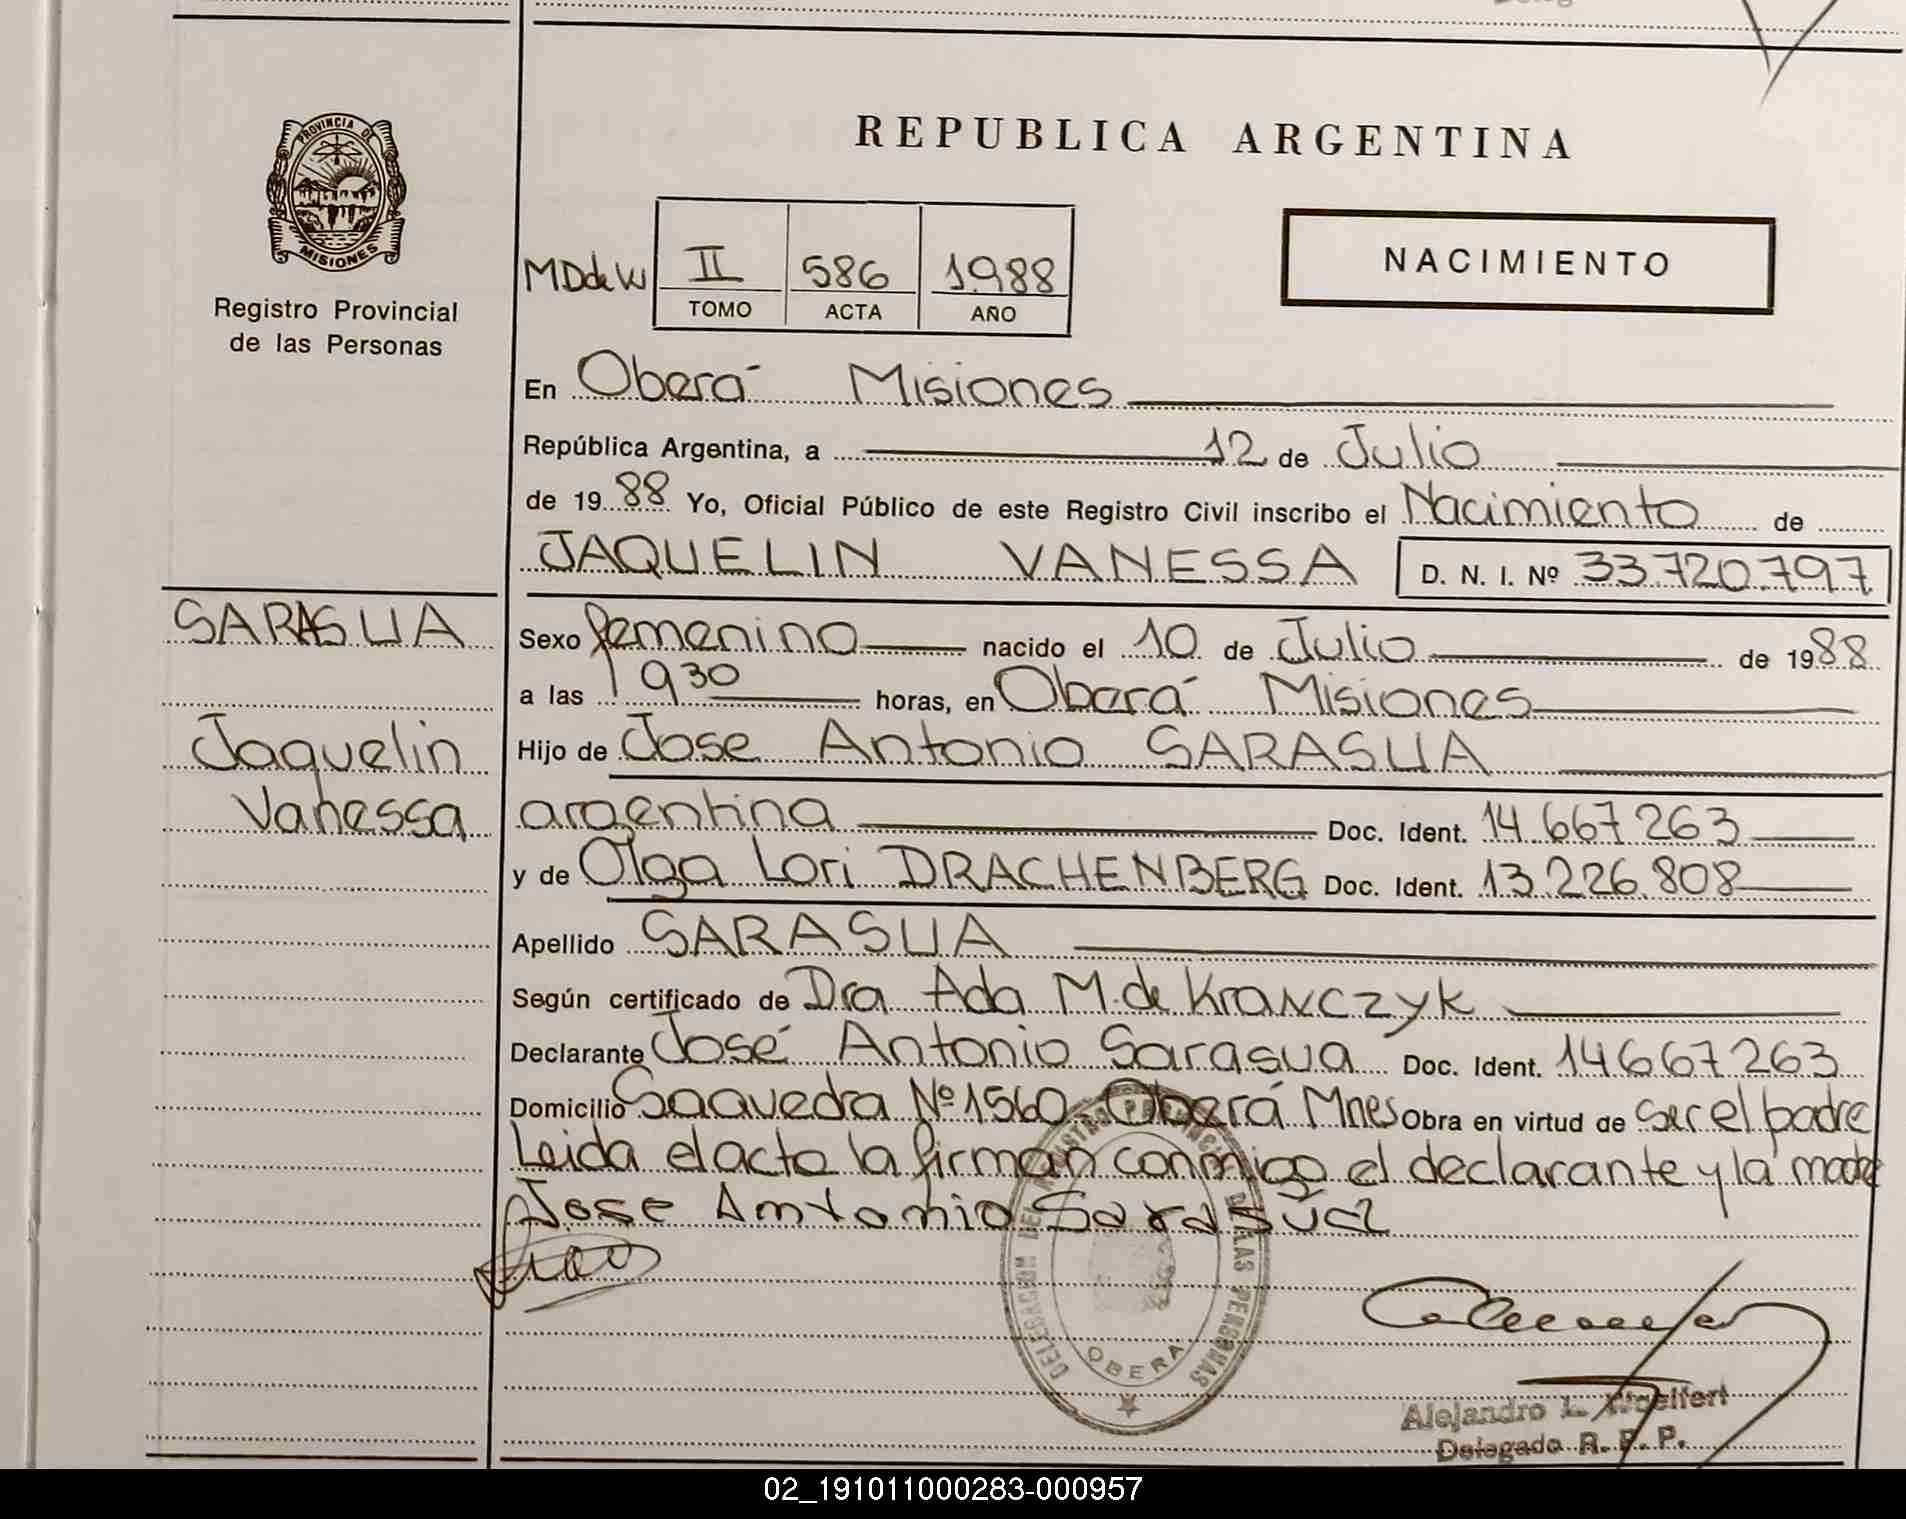 PROVINCIA DE
MISIONES
Registro Provincial
de las Personas
REPUBLICA ARGENTINA
NACIMIENTO
MDdeW II 586 1988
TOMO ACTA AÑO
En Oberá Misiones
República Argentina, a 12 de Julio
de 1988 Yo, Oficial Público de este Registro Civil inscribo el Nacimiento de
JAQUELIN VANESSA D. N. I. Nº 33720.797
SARASUA
Jaquelin
Vanessa
Sexo femenino nacido el 10 de Julio de 1988
a las 930 horas, en Oberá Misiones
Hijo de Jose Antonio SARASUA
argentina Doc. Ident. 14.667263
y de Olga Lori DRACHENBERG Doc. Ident. 13.226.808
Apellido SARASUA
Según certificado de Dra Ada M. de Krawczyk
Declarante José Antonio Sarasua Doc. Ident. 14667263
Domicilio Saavedra Nº 1560 Oberá Mnes Obra en virtud de ser el padre
Leida el acta la firman conmigo el declarante y la madre
Jose Antonio Sarasua
DELEGACION DEL REGISTRO PROVINCIAL DE LAS PERSONAS
OBERA
Alejandro L. Woelfert
Delegado R. P. P.
02_191011000283-000957